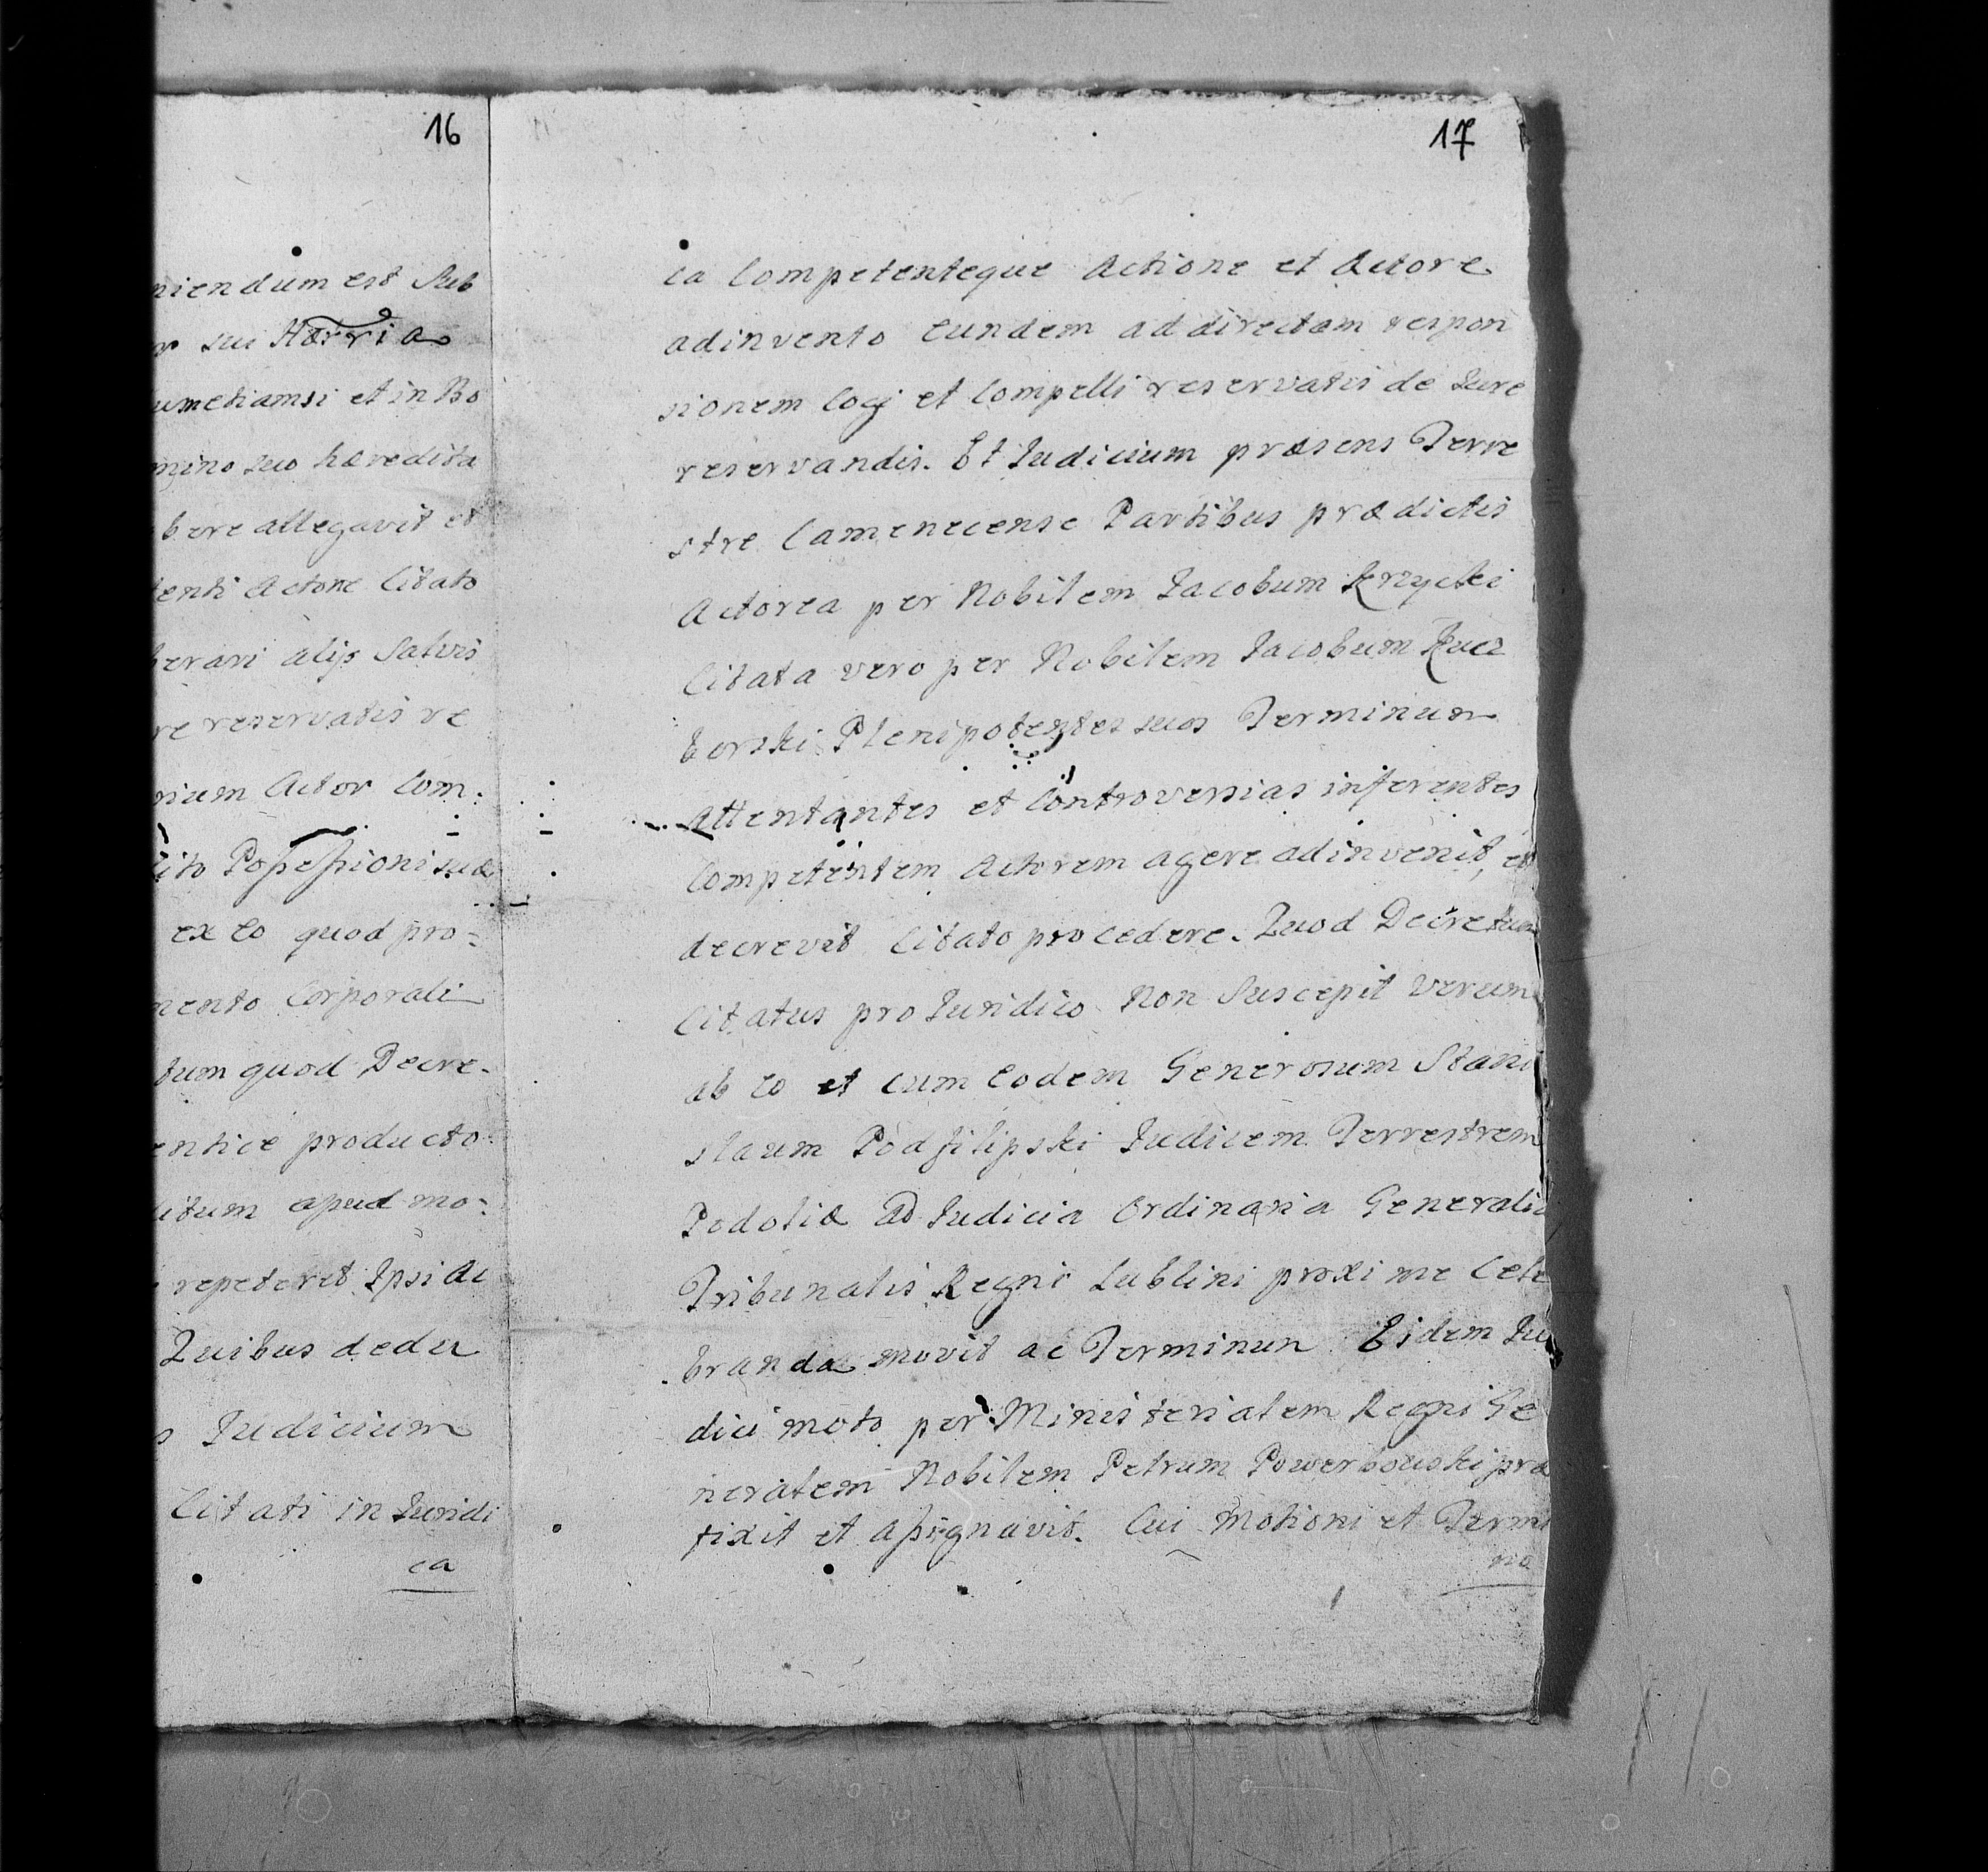 16
niendum est Sub
sui Hæria
umetiamsi et in Bo
mino suo hæredita
bere allegavit et
tenti Actore Citato
berari alijs Salvis
re reservatis re
rium Actor Com:
ito Possessioni suæ
ex eo quod pro:
mento Corporali
tum quod Decre-
entice producto
itum apud mo:
repeteret Ipsi Ac
Quibus dedu
s Judicium
Citati in Juridi
ca
17
ca Competenteque Actione et Actore
adinvento Eundem ad directam respon
sionem Cogi et Compelli reservatis de Jure
reservandis. Et Judicium præsens Terre
stre Camenecense Partibus prædictis
Actorea per Nobilem Jacobum Krzycki
Citata vero per Nobilem Jacobum Kucz
borski Plenipotentes suos Terminum
Attentantes et Controversias inferentes
Competentem Actorem agere adinvenit, et
decrevit Citato procedere. Quod Decretum
Citatus pro Juridico Non Suscepit Verum
ab eo et cum Eodem Generosum Stani
slaum Podfilipski Judicem Terrestrem
Podoliæ Ad Judicia Ordinaria Generalia
Tribunalis Regni Lublini proxime Cele
branda movit ac Terminun Eidem Ju
dici moto per Ministerialem Regni Ge
neralem Nobilem Petrum Powerbouski præ
fixit et Assignavit. Cui Motioni et Termi
no